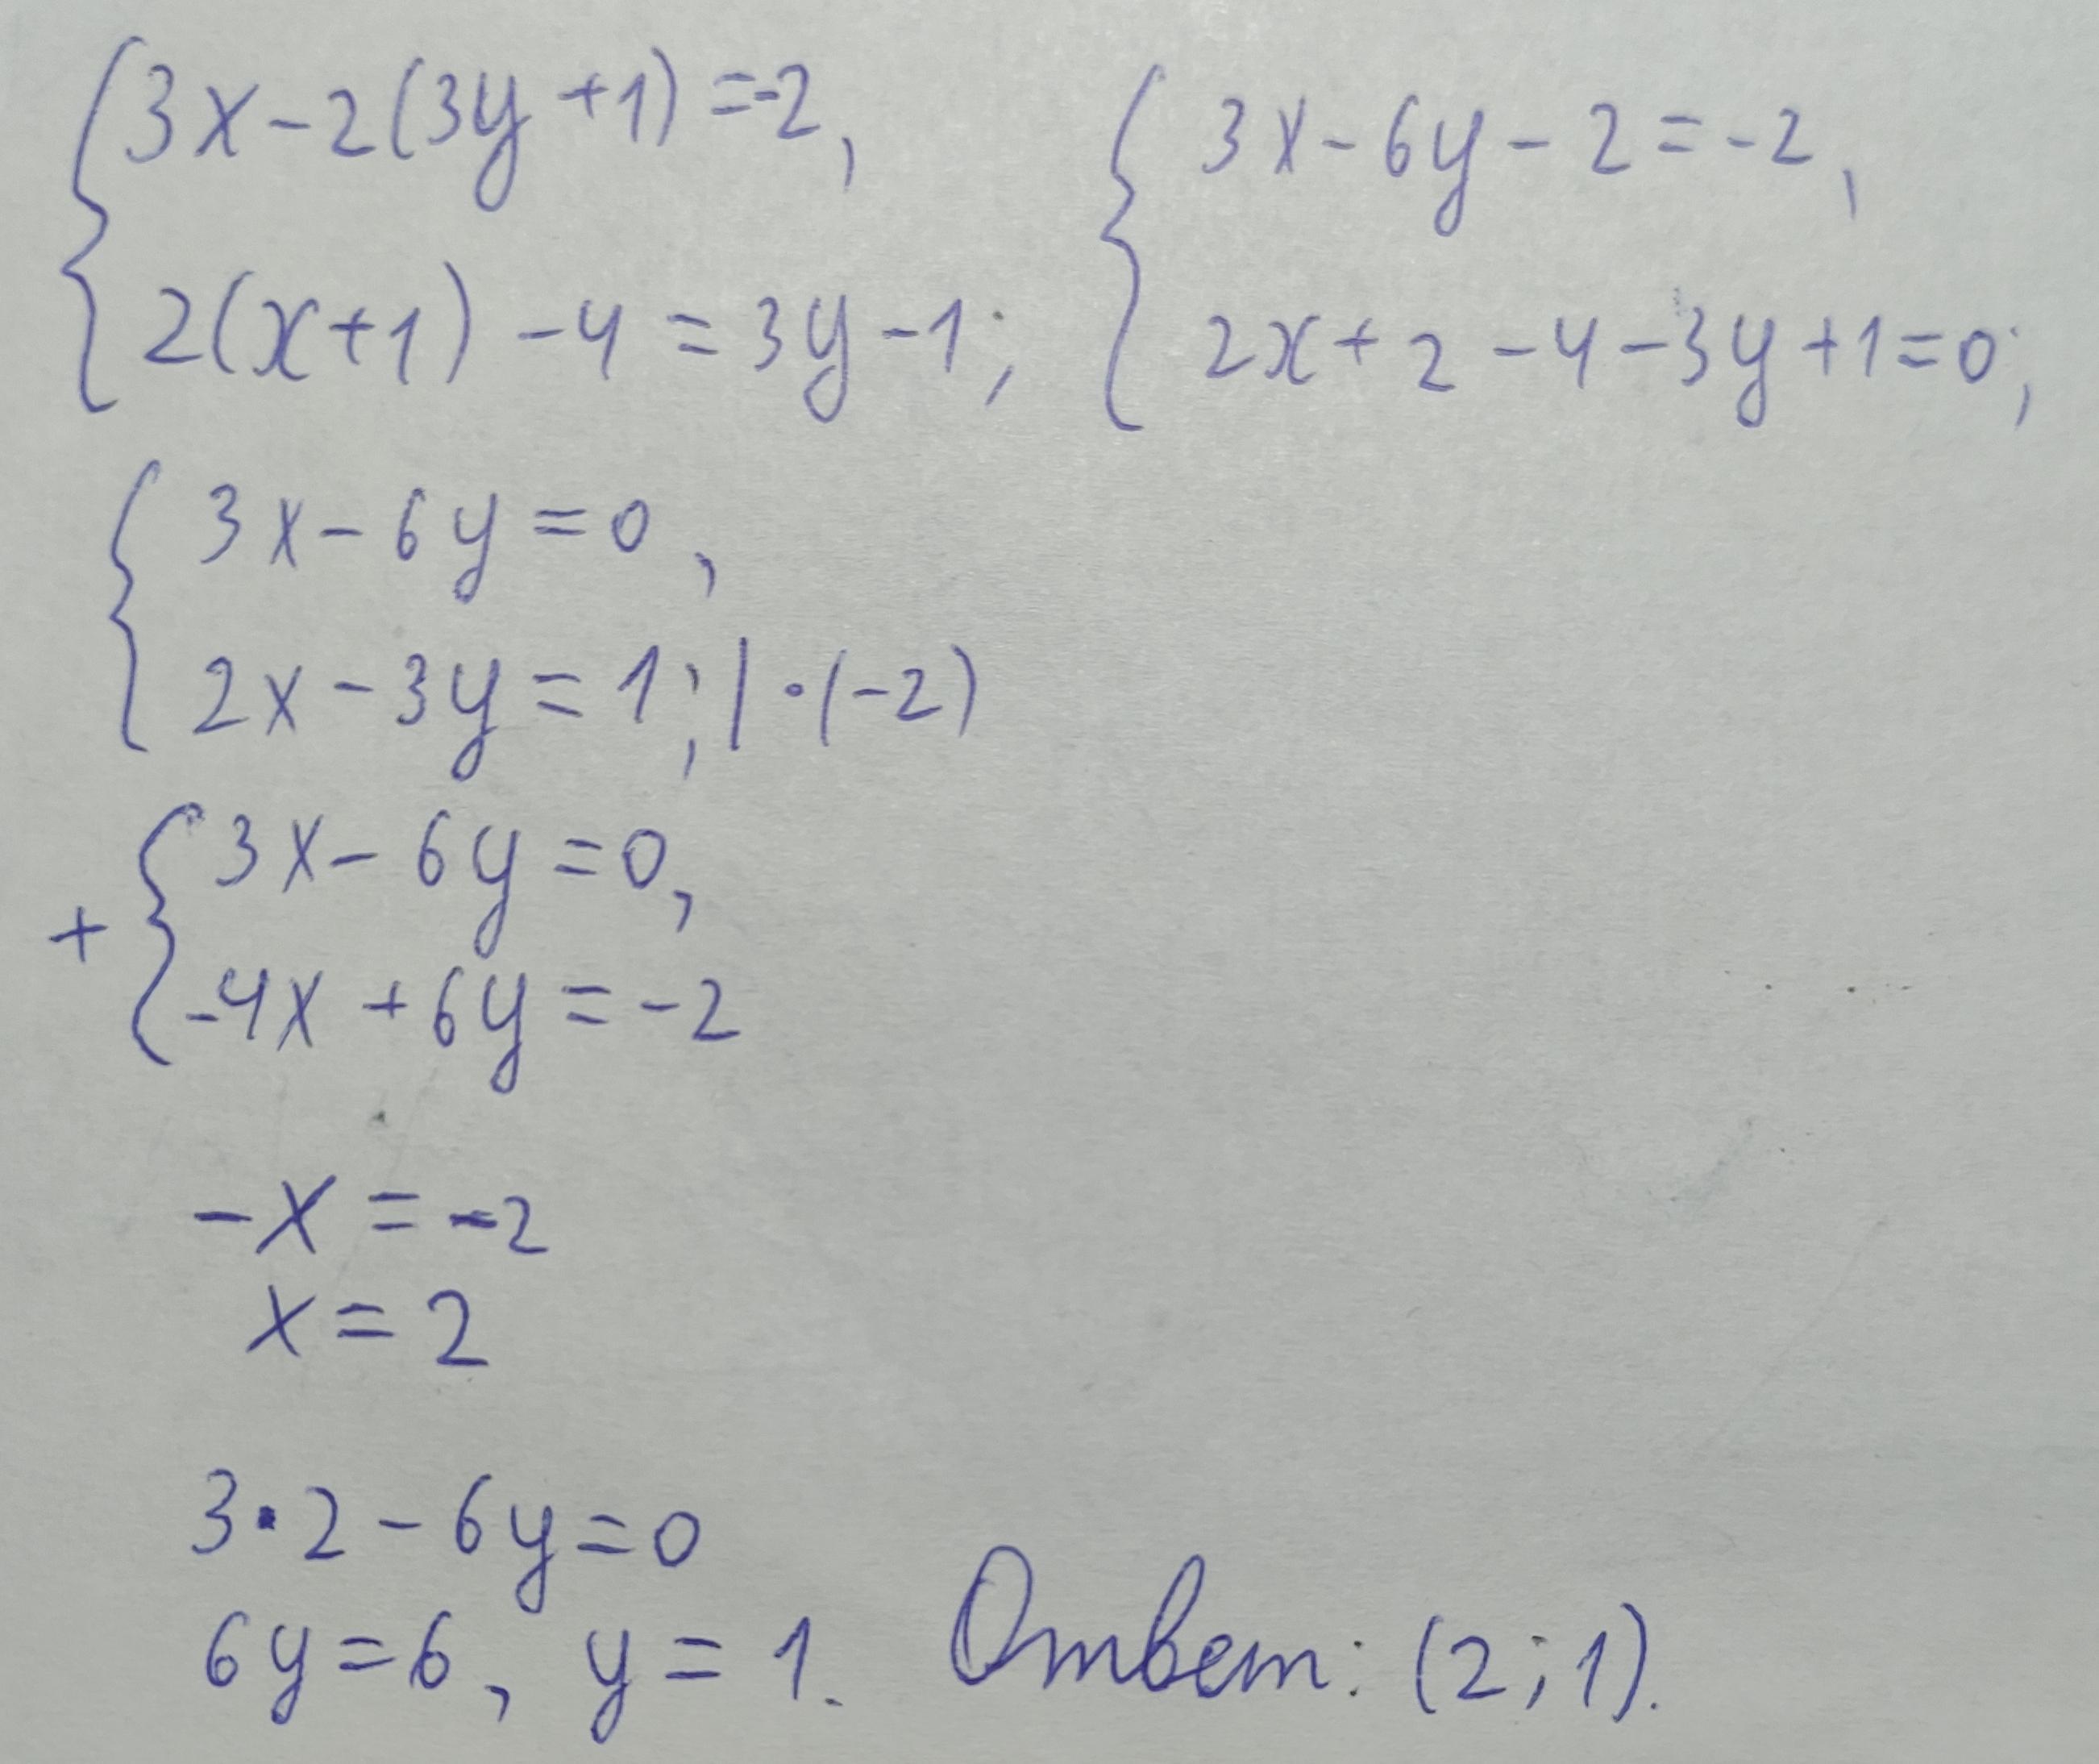 {3x-2(3y+1)=-2, {3x-6y-2=-2,
{2(x+1)-4=3y-1; {2x+2-4-3y+1=0;
{3x-6y=0,
{2x-3y=1; |·(-2)
+{3x-6y=0,
{-4x+6y=-2
-x=-2
x=2
3·2-6y=0
6y=6, y=1. Ответ: (2;1).